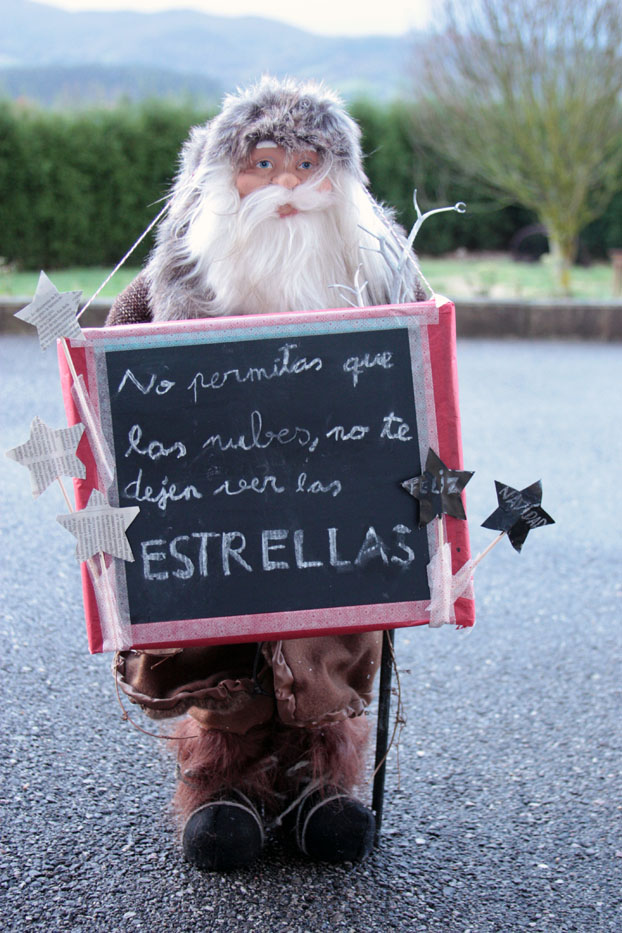 No permitas que
las nubes, no te
dejen ver las
ESTRELLAS
FELIZ
NAVIDAD